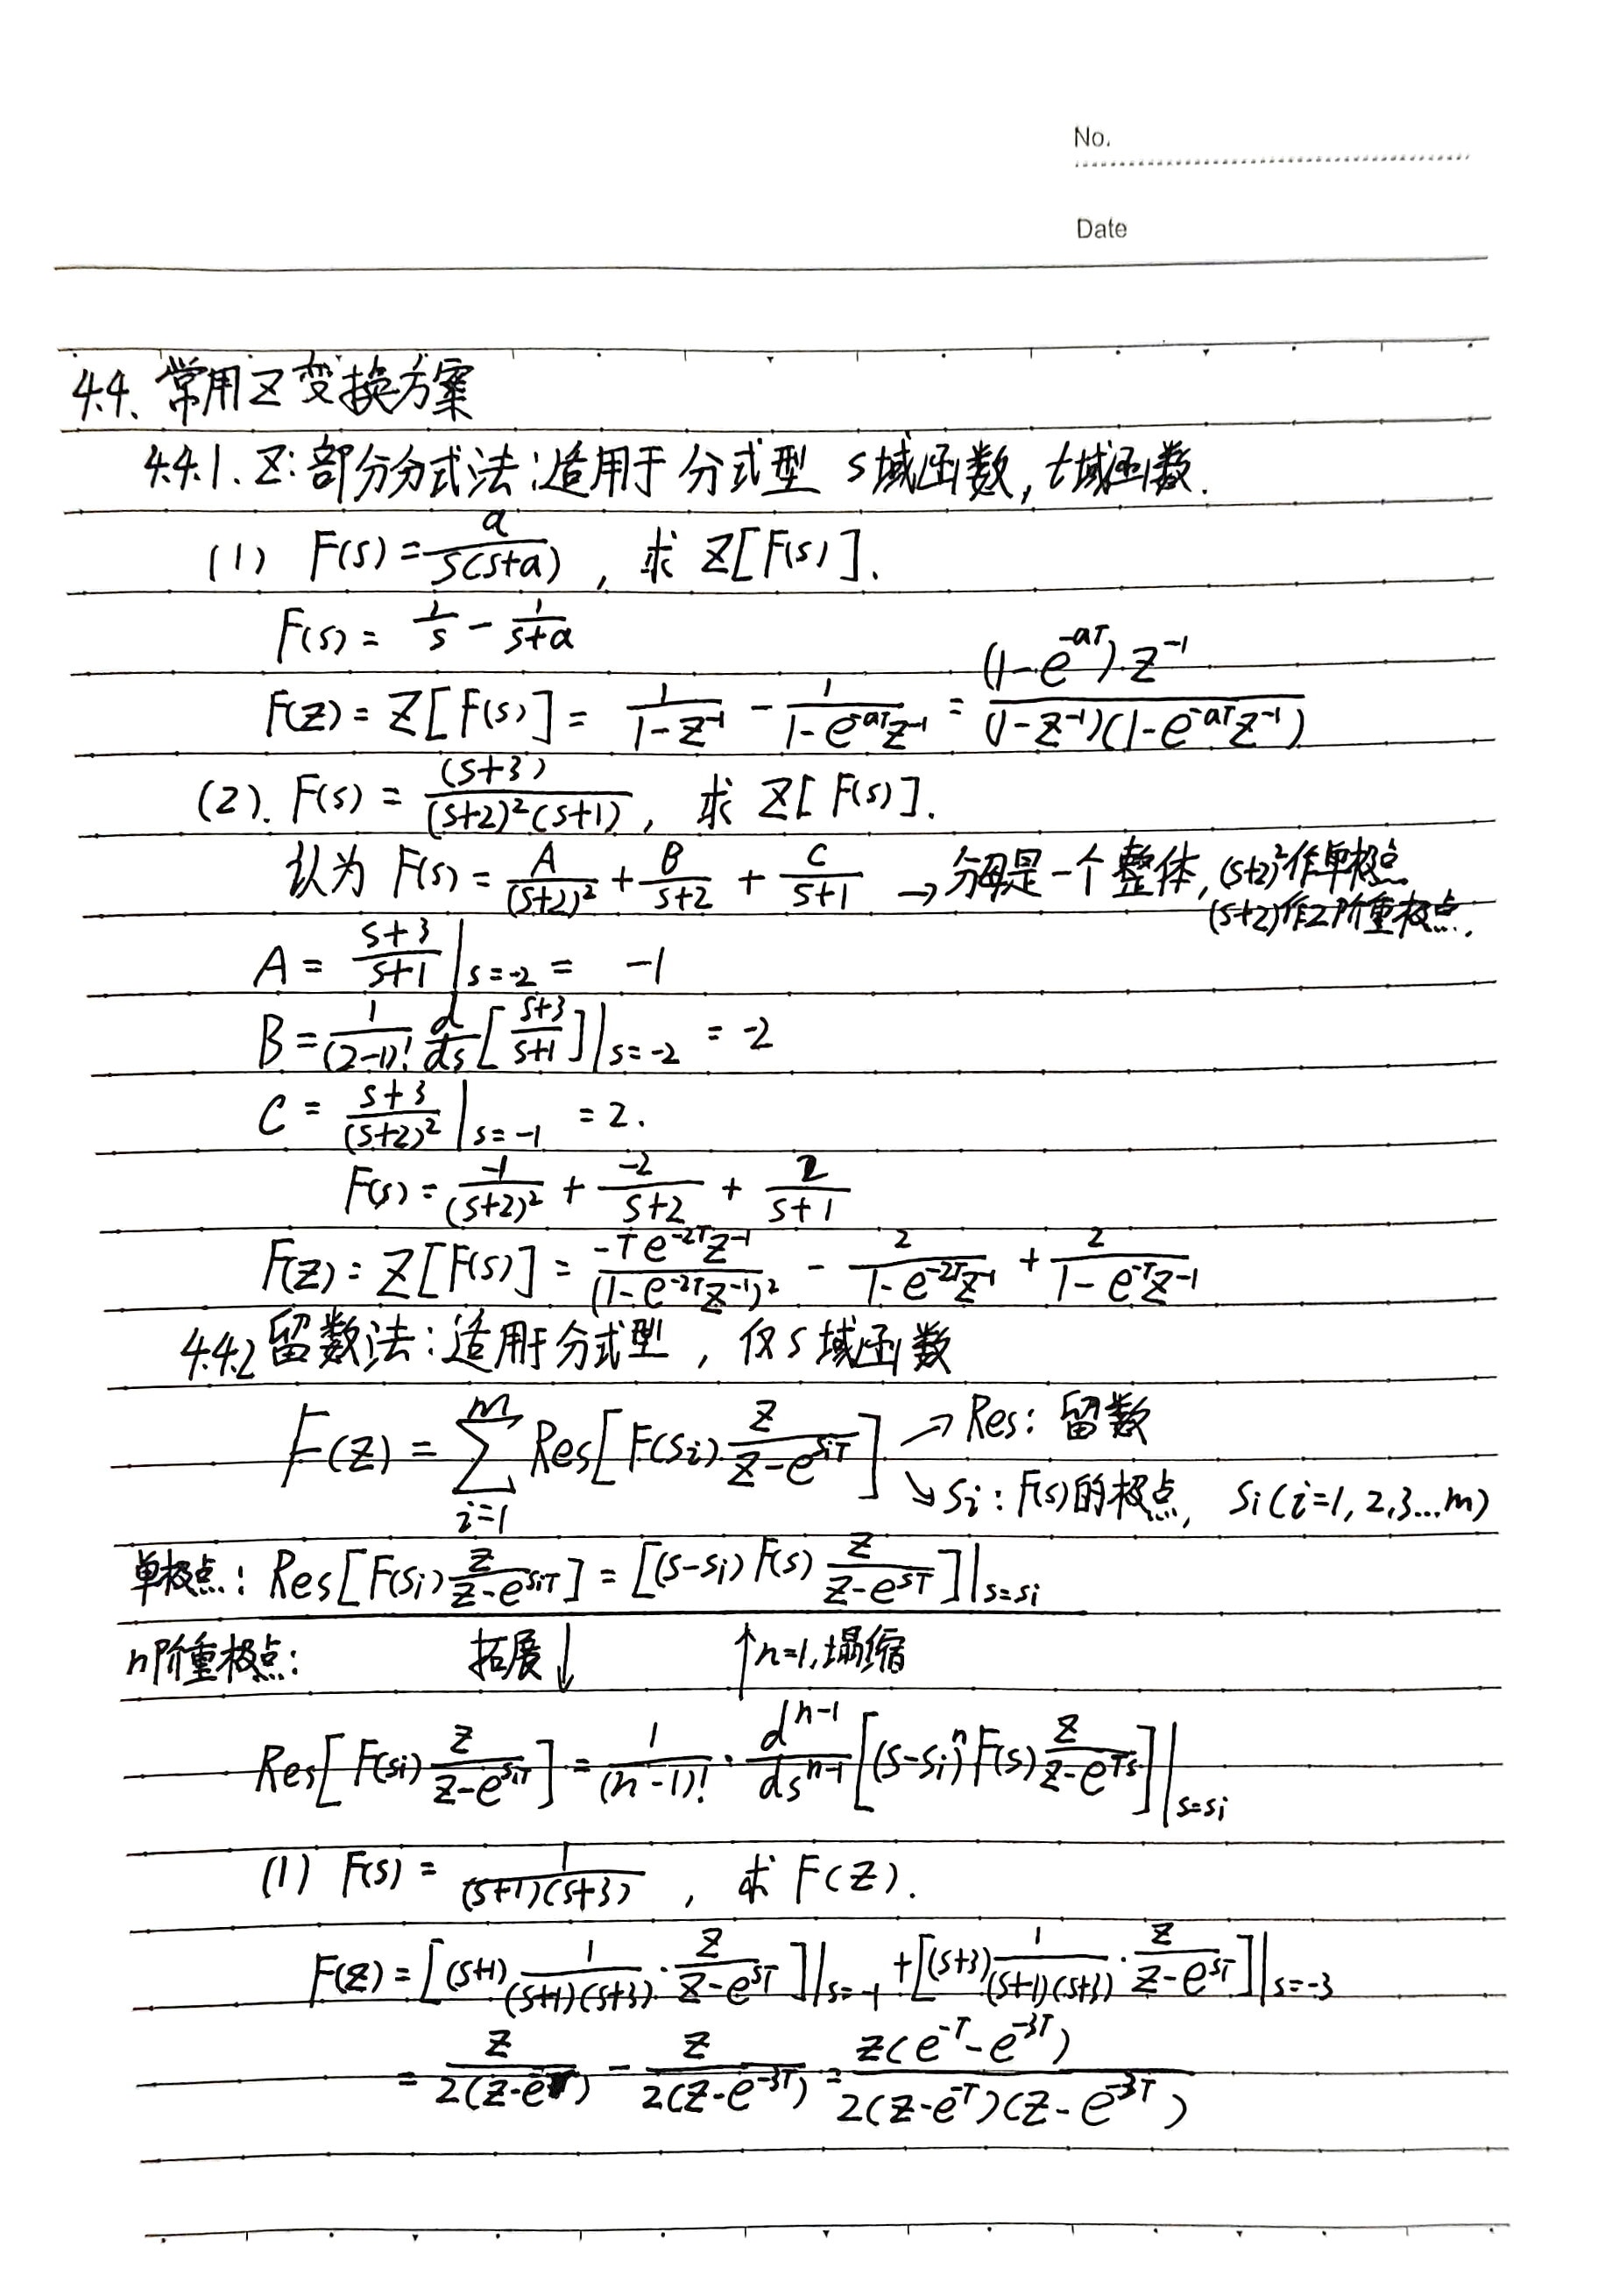 No.
Date
4.4. 常用Z变换方案
4.4.1. Z: 部分分式法:适用于 分式型 s域函数, t域函数.
(1) F(s) = a/(s(s+a)) , 求 Z[F(s)].
F(s) = 1/s - 1/(s+a)
F(z) = Z[F(s)] = 1/(1-z^{-1}) - 1/(1-e^{-aT}z^{-1}) = (1-e^{-aT})·z^{-1}/((1-z^{-1})(1-e^{-aT}z^{-1}))
(2). F(s) = (s+3)/((s+2)^2(s+1)), 求 Z[F(s)].
认为 F(s) = A/(s+2)^2 + B/(s+2) + C/(s+1) → 分母是一个整体, (s+2)^2作单极点
(s+2)作2阶重极点.
A = (s+3)/(s+1) |_{s=-2} = -1
B = 1/(2-1)! d/ds [(s+3)/(s+1)] |_{s=-2} = -2
C = (s+3)/(s+2)^2 |_{s=-1} = 2.
F(s) = -1/(s+2)^2 + -2/(s+2) + 2/(s+1)
F(z) = Z[F(s)] = -Te^{-2T}z^{-1}/(1-e^{-2T}z^{-1})^2 - 2/(1-e^{-2T}z^{-1}) + 2/(1-e^{-T}z^{-1})
4.4.2 留数法:适用于分式型 , 仅s域函数
F(z) = ∑_{i=1}^{m} Res[F(s_i) z/(z-e^{s_iT})] ↗ Res: 留数
↘ s_i: F(s)的极点, s_i(i=1,2,3...m)
单极点: Res[F(s_i) z/(z-e^{s_iT})] = [(s-s_i) F(s) z/(z-e^{sT})] |_{s=s_i}
n阶重极点: 拓展↓ ↑n=1,塌缩
Res[F(s_i) z/(z-e^{s_iT})] = 1/(n-1)! · d^{n-1}/ds^{n-1} [(s-s_i)^n F(s) z/(z-e^{Ts})] |_{s=s_i}
(1) F(s) = 1/((s+1)(s+3)) , 求 F(z).
F(z) = [(s+1) 1/((s+1)(s+3)) · z/(z-e^{sT})] |_{s=-1} + [(s+3) 1/((s+1)(s+3)) · z/(z-e^{sT})] |_{s=-3}
= z/(2(z-e^{-T})) - z/(2(z-e^{-3T})) = z(e^{-T}-e^{-3T})/(2(z-e^{-T})(z-e^{-3T}))